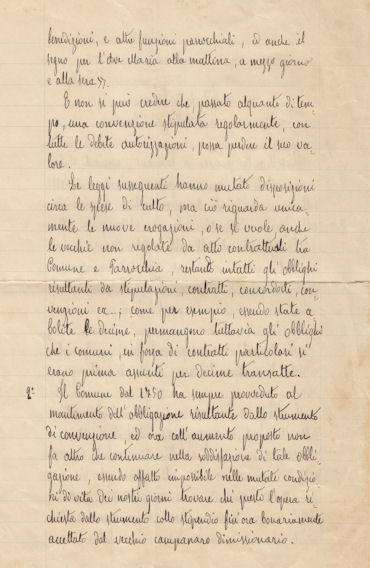 benedizioni, e altre funzioni parrocchiali, ed anche il
segno per l'Ave Maria alla mattina, a mezzo giorno
e alla sera>>.
E non si può credere che, passato alquanto di tem-
po, una convenzione stipulata regolarmente, con
tutte le debite autorizzazioni, possa perdere il suo va-
lore.
Le leggi susseguenti hanno mutato disposizioni
circa le spese di culto, ma ciò riguarda unica-
mente le nuove erogazioni, o se si vuole, anche
le vecchie non regolate da atto contrattuali tra
Comune e Parrocchia, restando intatti gli obblighi
risultanti da stipulazioni, contratti, concordati, con-
venzioni ec..; come per esempio, essendo state a-
bolite le decime, permangono tuttavia gli obblighi
che i comuni, in forza di contratti particolari si
erano prima assunti per decime transatte.
2° Il Comune dal 1750 ha sempre provveduto al
mantimento dell'obbligazione risultante dallo strumento
di convenzione, ed ora coll'aumento proposto non
fa altro che continuare nella soddisfazione di tale obbli-
gazione, essendo affatto impossibile nelle mutate condizio-
ni di vita dei nostri giorni trovare chi presti l'opera ri-
chiesta dallo strumento collo stipendio fin'ora bonariamente
accettato dal vecchio campanaro dimissionario.